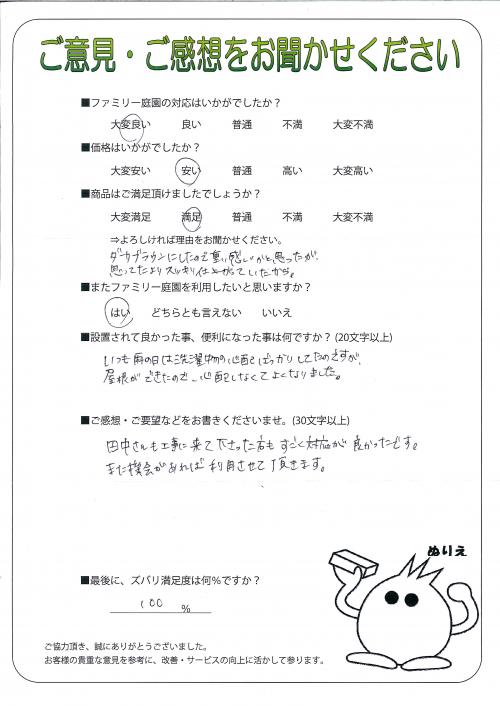 ご意見・ご感想をお聞かせください
■ファミリー庭園の対応はいかがでしたか？
大変良い 良い 普通 不満 大変不満
■価格はいかがでしたか？
大変安い 安い 普通 高い 大変高い
■商品はご満足頂けましたでしょうか？
大変満足 満足 普通 不満 大変不満
⇒よろしければ理由をお聞かせください。
ダークブラウンにしたので重い感じかと思ったが、
思ってたよりスッキリ仕上がっていたから。
■またファミリー庭園を利用したいと思いますか？
はい どちらとも言えない いいえ
■設置されて良かった事、便利になった事は何ですか？(20文字以上)
いつも雨の日は洗濯物の心配ばっかりしてたのですが、
屋根ができたので、心配しなくてよくなりました。
■ご感想・ご要望などをお書きくださいませ。(30文字以上)
田中さんも工事に来て下さった方もすごく対応が良かったです。
また機会があれば利用させて頂きます。
ぬりえ
■最後に、ズバリ満足度は何％ですか？
100 %
ご協力頂き、誠にありがとうございました。
お客様の貴重な意見を参考に、改善・サービスの向上に活かして参ります。